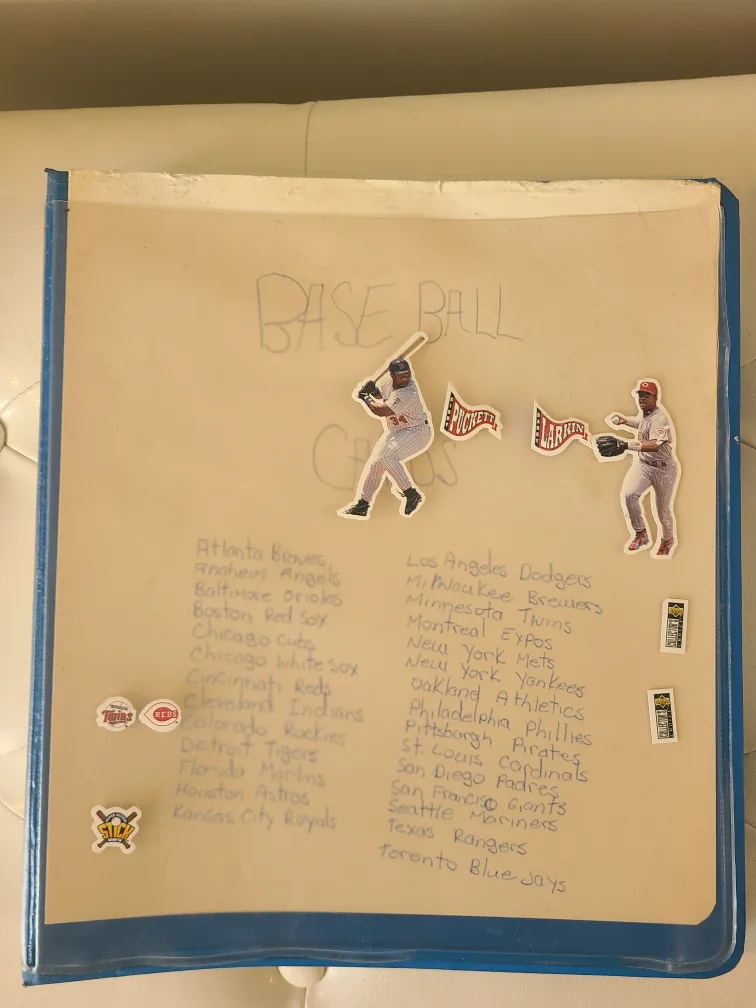 BASEBALL
CARDS
34
PUCKETT
LARKIN
Atlanta Braves
Anaheim Angels
Baltimore Orioles
Boston Red Sox
Chicago Cubs
Chicago White Sox
Cincinnati Reds
Cleveland Indians
Colorado Rockies
Detroit Tigers
Florida Marlins
Houston Astros
Kansas City Royals
Los Angeles Dodgers
Milwaukee Brewers
Minnesota Twins
Montreal Expos
New York Mets
New York Yankees
Oakland Athletics
Philadelphia Phillies
Pittsburgh Pirates
St. Louis Cardinals
San Diego Padres
San Francisco Giants
Seattle Mariners
Texas Rangers
Toronto Blue Jays
Twins
REDS
STICK